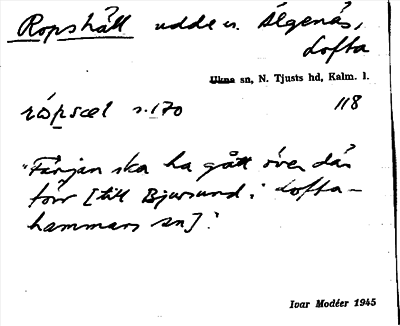 Ropshäll udde u. Älgenäs,
Lofta
Ukna sn, N. Tjusts hd, Kalm. l.
rópscel s. 170 118
"Färjan ska ha gått över där
förr [till Bjursund i Lofta-
hammars sn]".
Ivar Modéer 1945